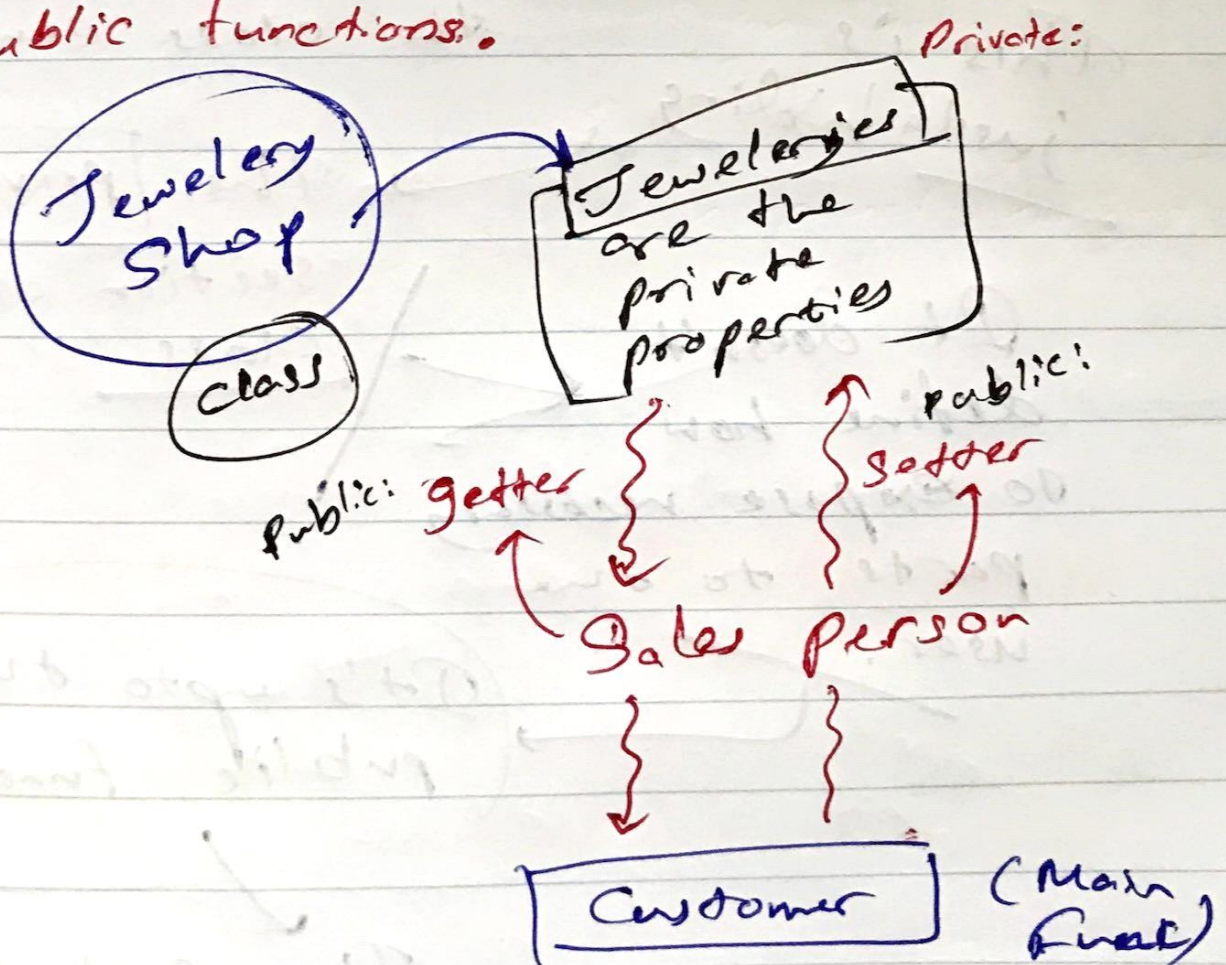 ublic functions.
Private:
Jewelery
Shop
class
Jeweleryies
are the
private
properties
public:
setter
public: getter
Sales person
Customer
(Main
Funct)